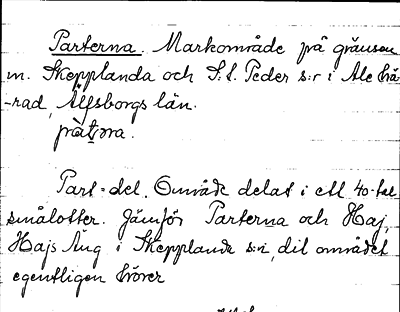 Parterna. Markområde på gränsen
m. Skepplanda och S:t Peder s:r i Ale hä-
-rad, Älfsborgs län.
pàtɔra.
Part = del. Område delat i ett 40-tal
smålotter. Jämför Parterna och Haj,
Hajs Äng i Skepplanda s:n, dit området
egentligen hörer